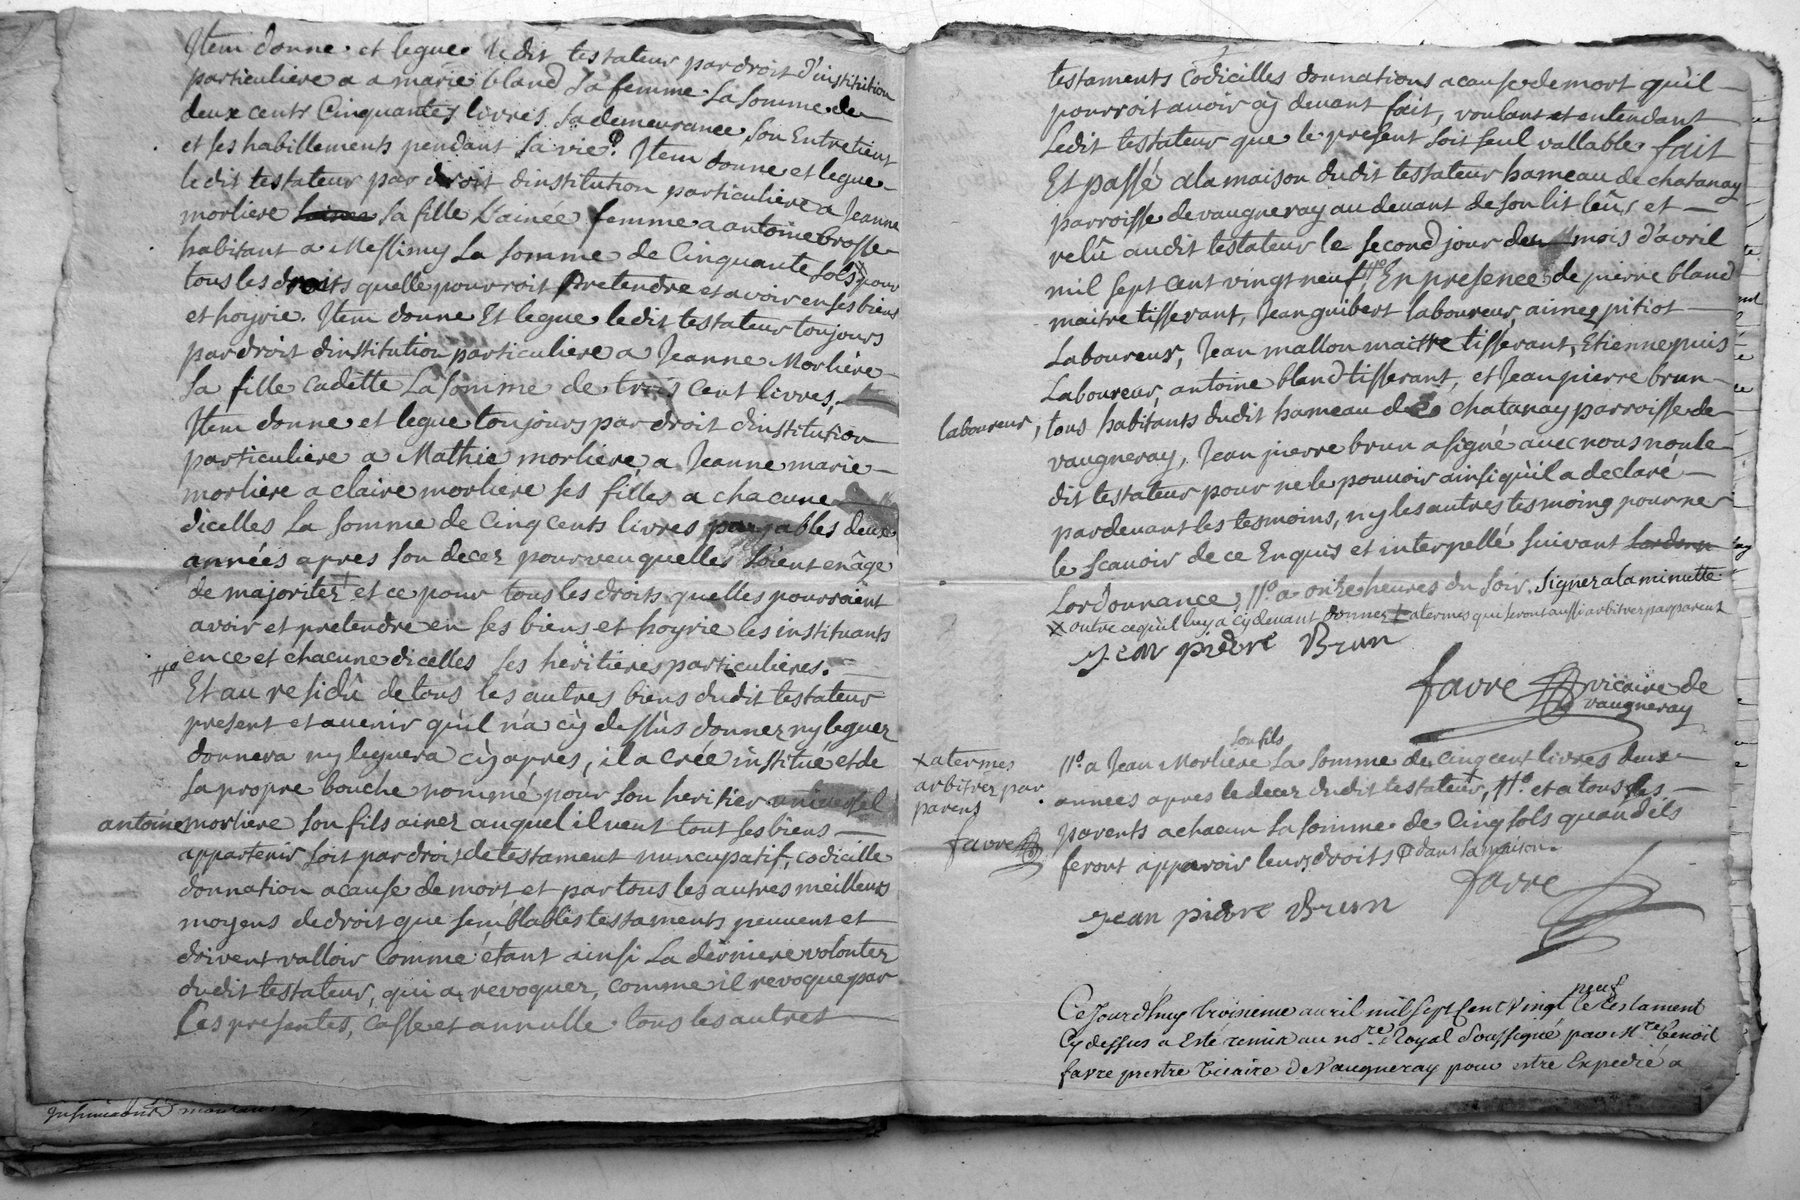 Item donne et legue ledit testateur par droit d'institution
particuliere a a marie bland sa femme la somme de
deux cents Cinquantes livres sa demeurance son Entretient
et ses habillements pendant sa vie. Item donne et legue
ledit testateur par droit dinstitution particuliere a Jeanne
morliere sa fille L'ainée femme a antoine brosse
habitant a Messimy La somme de Cinquante sols pour
tous les droits quelle pourroit Pretendre et avoir en ses biens
et hoyrie. Item donne Et legue ledit testateur toujours
par droit dinstitution particuliere a Jeanne Morliere
sa fille cadette La somme de trois cent livres,
Item donne et legue toujours par droit dinstitution
particuliere a Mathie morliere, a Jeanne marie
morliere a claire morliere ses filles a chacune
dicelles La somme de Cinq cents livres payables deux
années apres son decez pourveu quelles soient en âge
de majoritez et ce pour tous les droits quelles pourroient
avoir et pretendre en ses biens et hoyrie les instituants
en ce et chacune dicelles ses heritieres particulieres.
Et au residû de tous les autres biens dudit testateur
present et avenir qu'il n'a cÿ dessus donnez ny leguez
donnera ny leguera cÿ apres, il a crée institué et de
sa propre bouche nommé pour son heritier universel
antoine morliere son fils ainez auquel il veut tout ses biens
appartenir soit par droit de testament nuncupatif, codicille
donnation a cause de mort et par tous les autres meilleurs
moyens de droit que semblables testaments peuvent et
doivent valloir Comme étant ainsi La derniere volontez
dudit testateur, qui a revoquez, comme il revoque par
Ces presentes, Casse et annulle tous les autres
testaments Codicilles donnations a cause de mort qu'il
pourroit avoir cÿ devant fait, voulant et entendant
Ledit testateur que le present soit seul vallable fait
Et passé a la maison dudit testateur hameau de chatanay
parroisse de vaugneray au devant de son lit leû, et
relû audit testateur le second jour du mois d'avril
mil sept cent vingt neuf, En presence de pierre bland
maitre tisserant, Jean guibert laboureur, aimez pitiot
Laboureur, Jean mallon maittre tisserant, Etienne puis
Laboureur, antoine bland tisserant, et Jean pierre brun
laboureur, tous habitants dudit hameau de chatanay parroisse de
vaugneray, Jean pierre brun a signé avec nous non le
dit testateur pour ne le pouvoir ainsi qu'il a declaré
par devant les tesmoins, ny les autres tesmoing pour ne
le scavoir de ce Enquis et interpellé suivant
Lordonnance, a onze heures du soir. signez a la minutte
X outre ce qu'il luy a cÿ devant donnez a termes qui seront aussi arbitrez par parent
Jean pierre Brun
favre vicaire de
vaugneray
son fils
a Jean Morliere La somme de Cinq cent livres deux
X a termes
arbitrez par
parens
favre
annees apres le decez dudit testateur, et a tous ses
parents a chacun La somme de Cinq sols quand ils
feront apparoir leurs droits dans sa maison.
favre
Jean pierre Brun
Ce Jourdhuy troisieme avril mil sept Cent Vingt neuf le testament
Cy dessus a Esté remis au no.re Royal Soussigné par M.re benoit
favre prestre Vicaire De Vaugneray pour estre Expedié a